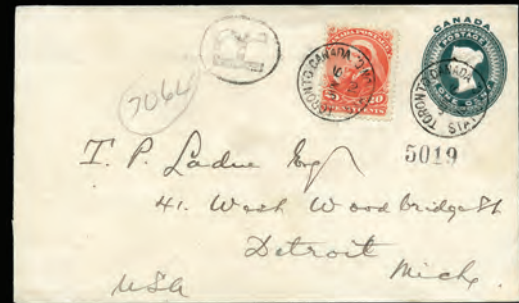 CANADA
POSTAGE
ONE CENT
CANADA POSTAGE
20 20
TORONTO CANADA
TORONTO CANADA
R
7064
5019
T. P. Ladue Esq
41. West Woodbridge St
Detroit
Mich
USA